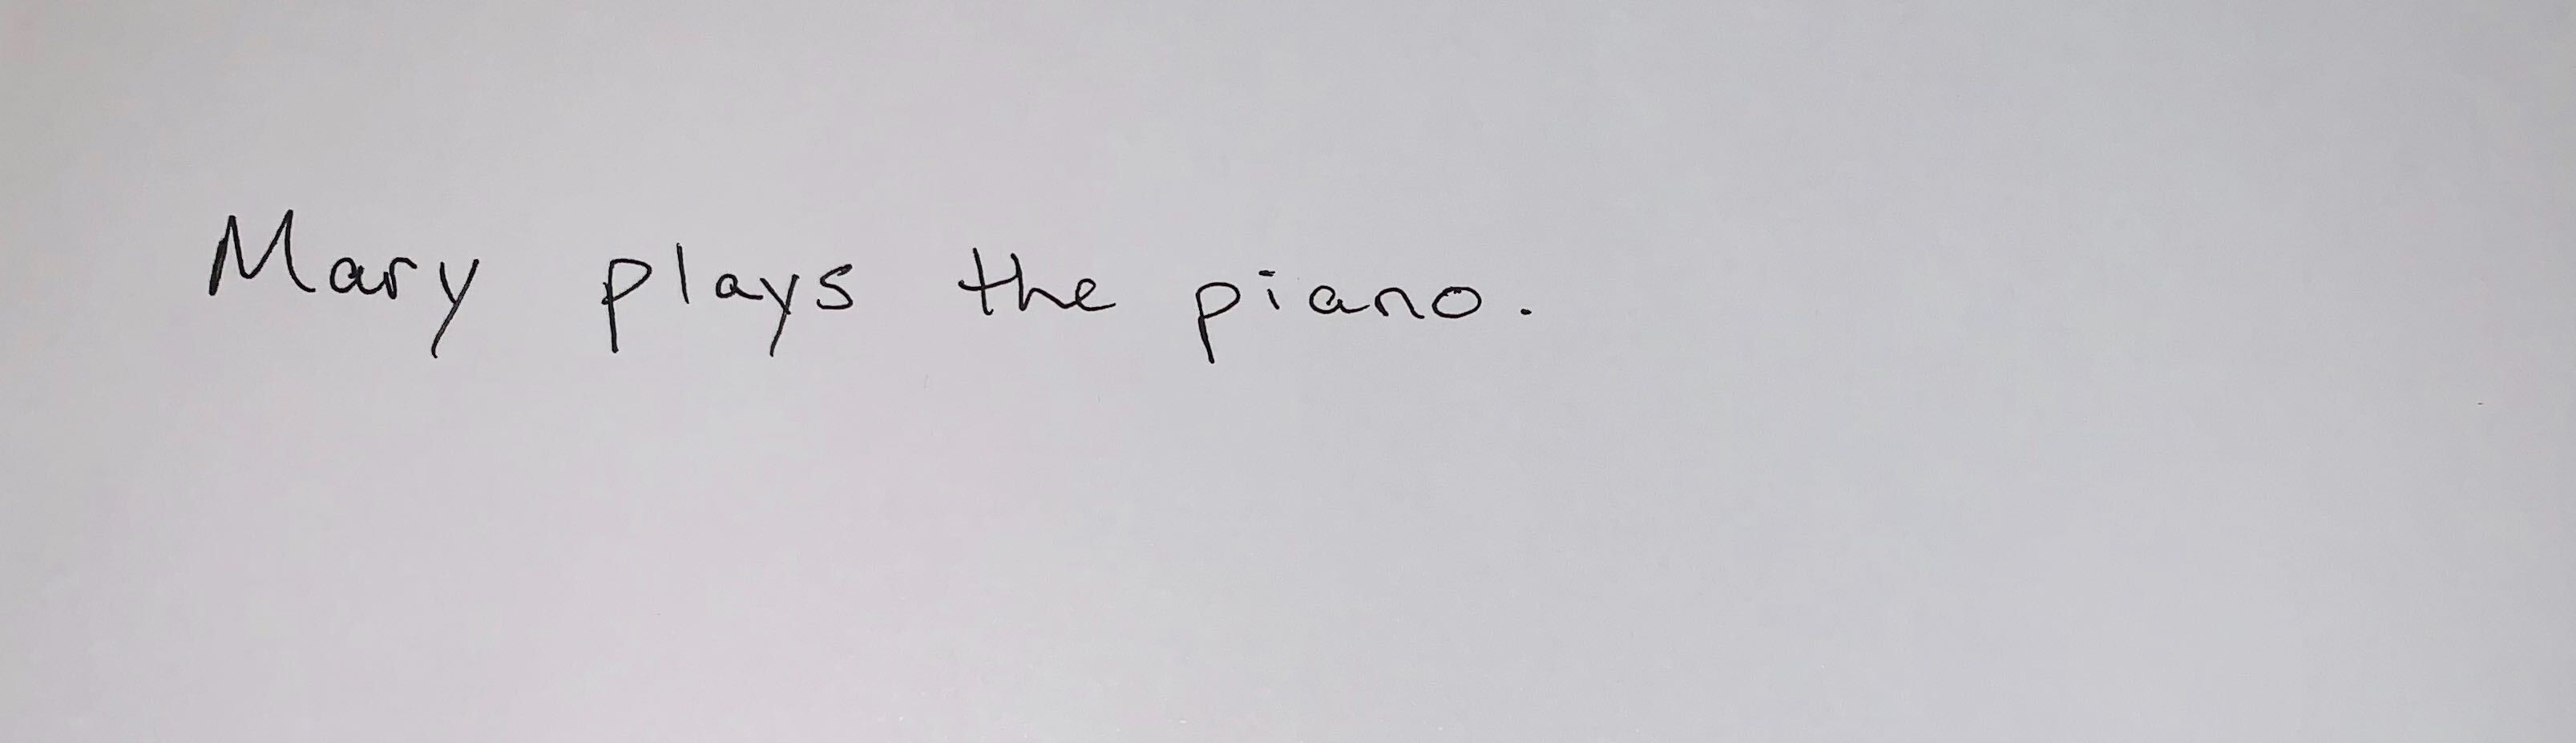 Mary plays the piano.